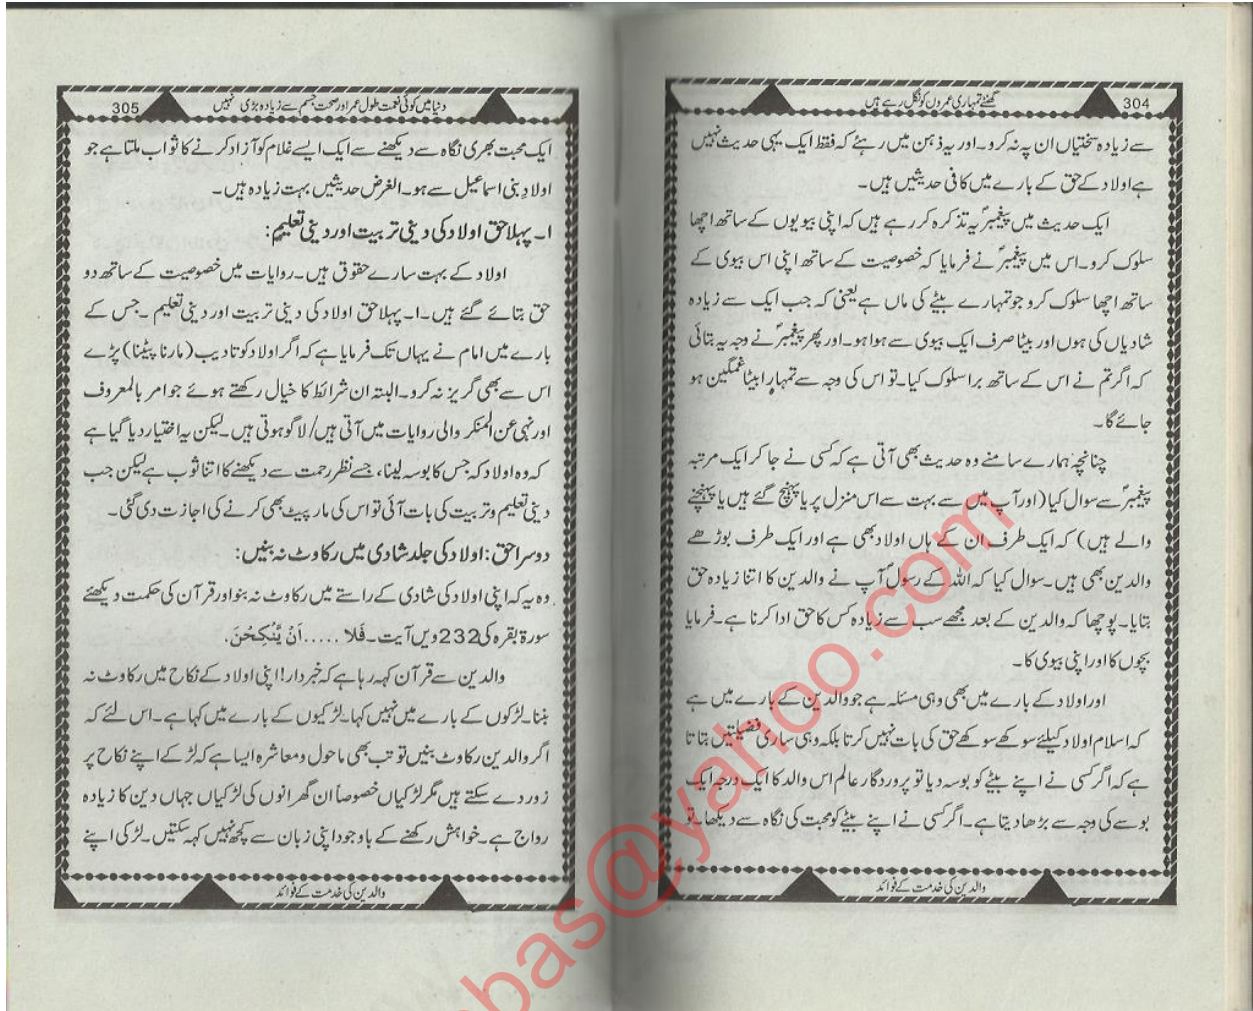 304
گھنٹے تمہاری عمروں کو نگل رہے ہیں
سے زیادہ سختیاں ان پہ نہ کرو۔ اور یہ ذہن میں رہئے کہ فقط ایک یہی حدیث نہیں
ہے اولاد کے حق کے بارے میں کافی حدیثیں ہیں۔
ایک حدیث میں پیغمبرؐ یہ تذکرہ کر رہے ہیں کہ اپنی بیویوں کے ساتھ اچھا
سلوک کرو۔ اس میں پیغمبرؐ نے فرمایا کہ خصوصیت کے ساتھ اپنی اس بیوی کے
ساتھ اچھا سلوک کرو جو تمہارے بیٹے کی ماں ہے یعنی کہ جب ایک سے زیادہ
شادیاں کی ہوں اور بیٹا صرف ایک بیوی سے ہوا ہو۔ اور پھر پیغمبرؐ نے وجہ یہ بتائی
کہ اگر تم نے اس کے ساتھ برا سلوک کیا۔ تو اس کی وجہ سے تمہارا بیٹا غمگین ہو
جائے گا۔
چنانچہ ہمارے سامنے وہ حدیث بھی آتی ہے کہ کسی نے جا کر ایک مرتبہ
پیغمبرؐ سے سوال کیا (اور آپ میں سے بہت سے اس منزل پر یا پہنچ گئے ہیں یا پہنچنے
والے ہیں) کہ ایک طرف ان کے ہاں اولاد بھی ہے اور ایک طرف بوڑھے
والدین بھی ہیں۔ سوال کیا کہ اللہ کے رسولؐ آپ نے والدین کا اتنا زیادہ حق
بتایا۔ پوچھا کہ والدین کے بعد مجھے سب سے زیادہ کس کا حق ادا کرنا ہے۔ فرمایا
بچوں کا اور اپنی بیوی کا۔
اور اولاد کے بارے میں بھی وہی مسئلہ ہے جو والدین کے بارے میں ہے
کہ اسلام اولاد کیلئے سوکھے سوکھے حق کی بات نہیں کرتا بلکہ وہی ساری فضیلتیں بتاتا
ہے کہ اگر کسی نے اپنے بیٹے کو بوسہ دیا تو پروردگار عالم اس والد کا ایک درجہ ایک
بوسے کی وجہ سے بڑھا دیتا ہے۔ اگر کسی نے اپنے بیٹے کو محبت کی نگاہ سے دیکھا۔ تو
والدین کی خدمت کے فوائد
305
دنیا میں کوئی نعمت طول عمر اور صحت جسم سے زیادہ بڑی نہیں
ایک محبت بھری نگاہ سے دیکھنے سے ایک ایسے غلام کو آزاد کرنے کا ثواب ملتا ہے جو
اولادِ بنی اسماعیل سے ہو۔ الغرض حدیثیں بہت زیادہ ہیں۔
۱۔ پہلا حق اولاد کی دینی تربیت اور دینی تعلیم:
اولاد کے بہت سارے حقوق ہیں۔ روایات میں خصوصیت کے ساتھ دو
حق بتائے گئے ہیں۔ ۱۔ پہلا حق اولاد کی دینی تربیت اور دینی تعلیم ۔ جس کے
بارے میں امام نے یہاں تک فرمایا ہے کہ اگر اولاد کو تادیب (مارنا پیٹنا) پڑے
اس سے بھی گریز نہ کرو۔ البتہ ان شرائط کا خیال رکھتے ہوئے جو امر بالمعروف
اور نہی عن المنکر والی روایات میں آتی ہیں/ لاگو ہوتی ہیں۔ لیکن یہ اختیار دیا گیا ہے
کہ وہ اولاد کہ جس کا بوسہ لینا، جسے نظر رحمت سے دیکھنے کا اتنا ثوب ہے لیکن جب
دینی تعلیم و تربیت کی بات آئی تو اس کی مار پیٹ بھی کرنے کی اجازت دی گئی۔
دوسرا حق: اولاد کی جلد شادی میں رکاوٹ نہ بنیں:
وہ یہ کہ اپنی اولاد کی شادی کے راستے میں رکاوٹ نہ بنو اور قرآن کی حکمت دیکھئے
سورۃ بقرہ کی 232 ویں آیت۔ فَلا ..... اَنْ يَّنْكِحْنَ.
والدین سے قرآن کہہ رہا ہے کہ خبردار! اپنی اولاد کے نکاح میں رکاوٹ نہ
بننا۔ لڑکوں کے بارے میں نہیں کہا۔ لڑکیوں کے بارے میں کہا ہے۔ اس لئے کہ
اگر والدین رکاوٹ بنیں تو تب بھی ماحول و معاشرہ ایسا ہے کہ لڑکے اپنے نکاح پر
زور دے سکتے ہیں مگر لڑکیاں خصوصاً ان گھرانوں کی لڑکیاں جہاں دین کا زیادہ
رواج ہے۔ خواہش رکھنے کے باوجود اپنی زبان سے کچھ نہیں کہہ سکتیں۔ لڑکی اپنے
والدین کی خدمت کے فوائد
bas@yahoo.com